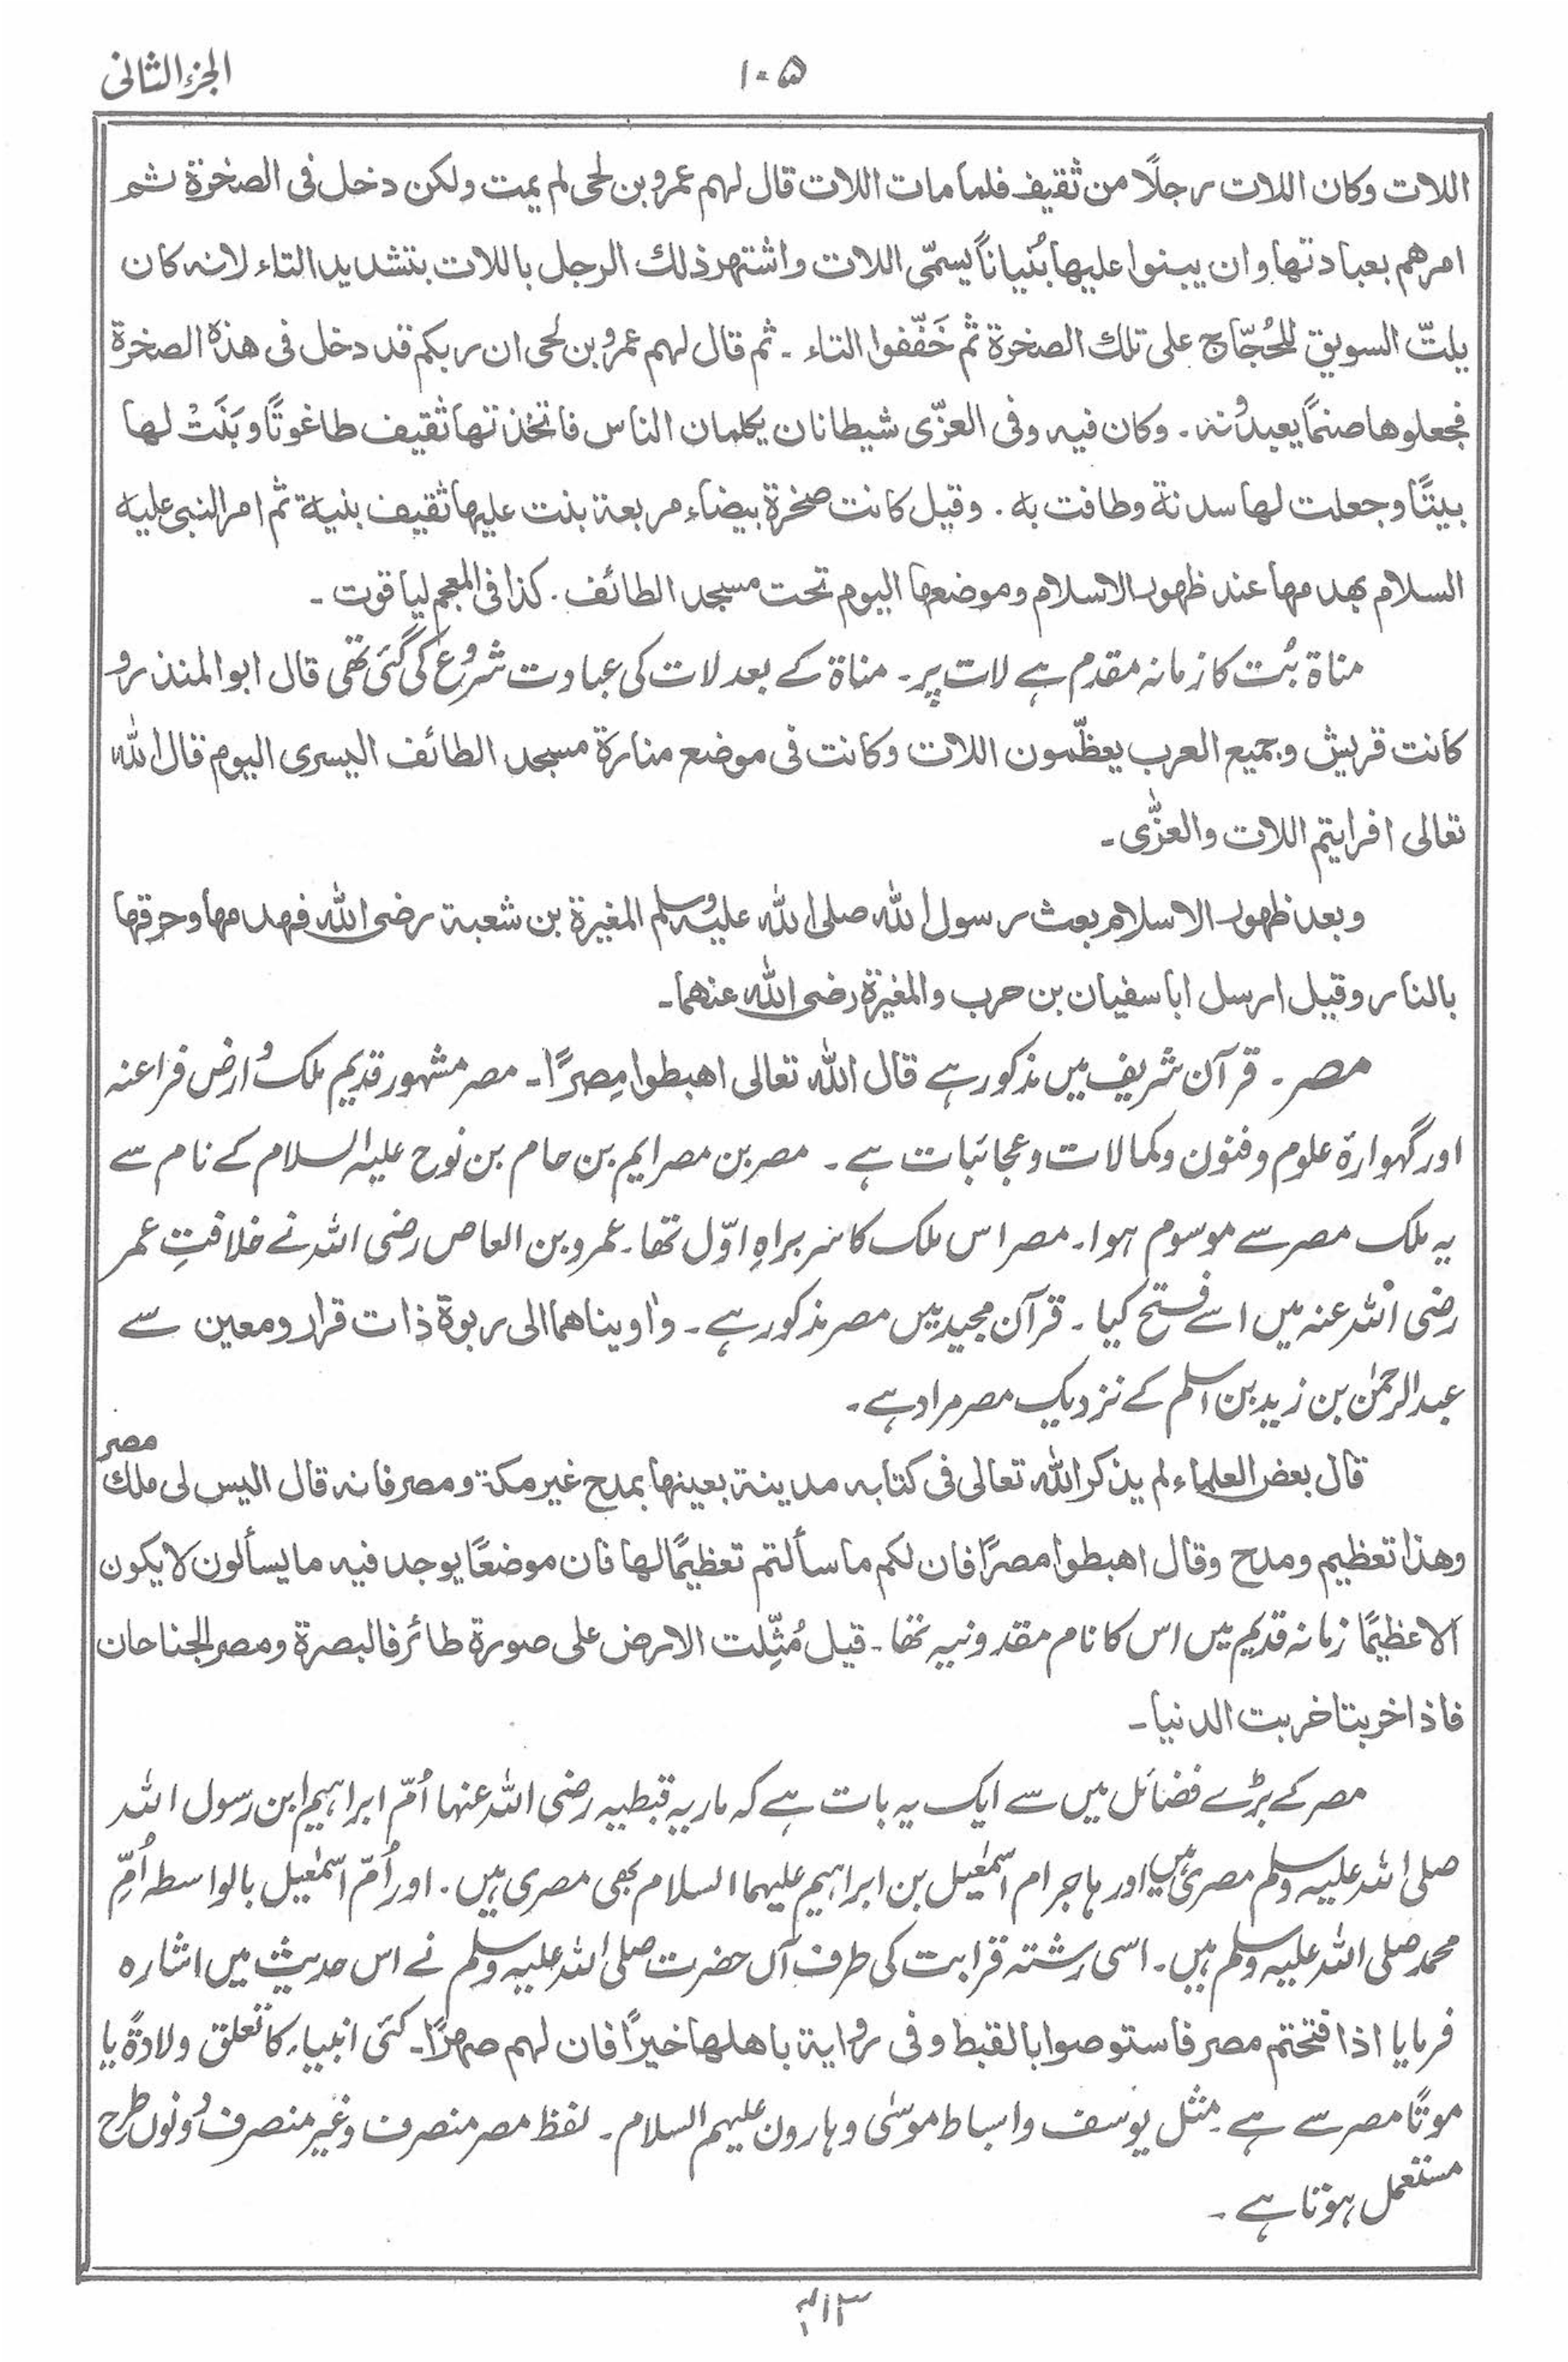 الجزء الثانی
۱۰۵
اللات وکان اللات رجلًا من ثقیف فلما مات اللات قال لہم عمرو بن لحی لم یمت ولکن دخل فی الصخرۃ ثم
امرھم بعبادتھا وان یبنوا علیھا بُنیانًا یسمّی اللات واشتھر ذلك الرجل باللات بتشدید التاء لانہ کان
یلتّ السویق للحُجّاج علی تلك الصخرۃ ثم خَفّفوا التاء ۔ ثم قال لہم عمرو بن لحی ان ربکم قد دخل فی ھذہ الصخرۃ
فجعلوھا صنمًا یعبدونہ ۔ وکان فیہ وفی العزّی شیطانان یکلمان الناس فاتخذتھا ثقیف طاغوتًا وبَنَتْ لھا
بیتًا وجعلت لھا سدنۃ وطافت بہ ۔ وقیل کانت صخرۃ بیضاء مربعۃ بنت علیھا ثقیف بنیۃ ثم امر النبی علیہ
السلام بھدمھا عند ظھور الاسلام وموضعھا الیوم تحت مسجد الطائف ۔ کذا فی المعجم لیاقوت ۔
مناۃ بُت کا زمانہ مقدم ہے لات پر ۔ مناۃ کے بعد لات کی عبادت شروع کی گئی تھی قال ابو المنذر و
کانت قریش وجمیع العرب یعظّمون اللات وکانت فی موضع منارۃ مسجد الطائف الیسری الیوم قال اللہ
تعالی افرایتم اللات والعزّٰی ۔
وبعد ظھور الاسلام بعث رسول اللہ صلی اللہ علیہ وسلم المغیرۃ بن شعبۃ رضی اللہ فھدمھا وحرقھا
بالنار وقیل ارسل ابا سفیان بن حرب والمغیرۃ رضی اللہ عنھما ۔
مصر ۔ قرآن شریف میں مذکور ہے قال اللہ تعالی اھبطوا مِصرًا ۔ مصر مشہور قدیم ملک وارض فراعنہ
اور گہوارۂ علوم وفنون وکمالات وعجائبات ہے ۔ مصر بن مصرایم بن حام بن نوح علیہ السلام کے نام سے
یہ ملک مصر سے موسوم ہوا ۔ مصر اس ملک کا سربراہِ اوّل تھا ۔ عمرو بن العاص رضی اللہ نے خلافتِ عمر
رضی اللہ عنہ میں اسے فتح کیا ۔ قرآن مجید میں مصر مذکور ہے ۔ واٰوینا ھما الی ربوۃ ذات قرار ومعین سے
عبد الرحمٰن بن زید بن اسلم کے نزدیک مصر مراد ہے ۔
قال بعض العلماء لم یذکر اللہ تعالی فی کتابہ مدینۃ بعینھا بمدح غیر مکۃ ومصر فانہ قال الیس لی ملك مصر
وھذا تعظیم ومدح وقال اھبطوا مصرًا فان لکم ما سألتم تعظیمًا لھا فان موضعًا یوجد فیہ ما یسألون لا یکون
الا عظیمًا زمانہ قدیم میں اس کا نام مقدونیہ تھا ۔ قیل مُثِّلت الارض علی صورۃ طائر فالبصرۃ ومصر الجناحان
فاذا خربتا خربت الدنیا ۔
مصر کے بڑے فضائل میں سے ایک یہ بات ہے کہ ماریہ قبطیہ رضی اللہ عنہا اُمّ ابراہیم ابن رسول اللہ
صلی اللہ علیہ وسلم مصری ہیں اور ہاجر ام اسمٰعیل بن ابراہیم علیہما السلام بھی مصری ہیں ۔ اور اُمّ اسمٰعیل بالواسطہ اُمِّ
محمد صلی اللہ علیہ وسلم ہیں ۔ اسی رشتہ قرابت کی طرف آں حضرت صلی اللہ علیہ وسلم نے اس حدیث میں اشارہ
فرمایا اذا فتحتم مصر فاستوصوا بالقبط وفی روایۃ باھلھا خیرًا فان لھم صھرًا ۔ کئی انبیاء کا تعلق ولادۃً یا
موتًا مصر سے ہے ۔ مثل یوسف واسباط موسٰی وہارون علیہم السلام ۔ لفظ مصر منصرف وغیر منصرف دونوں طرح
مستعمل ہوتا ہے ۔